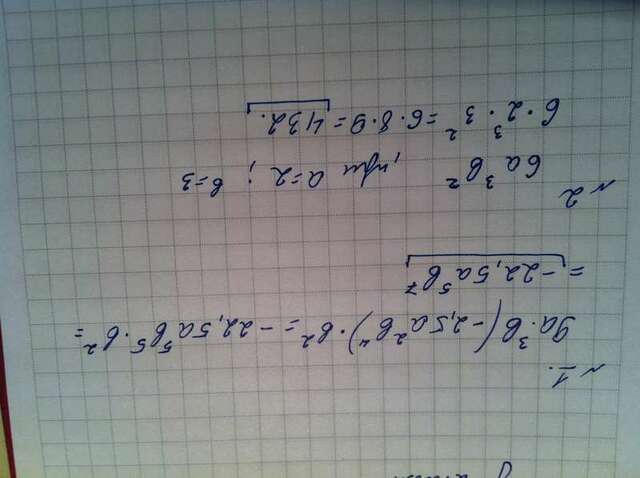 № 1.
9a³b(-2,5a²b⁴)·b² = -22,5a⁵b⁵·b² =
= -22,5a⁵b⁷
№ 2
6a³b², при a=2 ; b=3
6·2³·3² = 6·8·9 = 432.